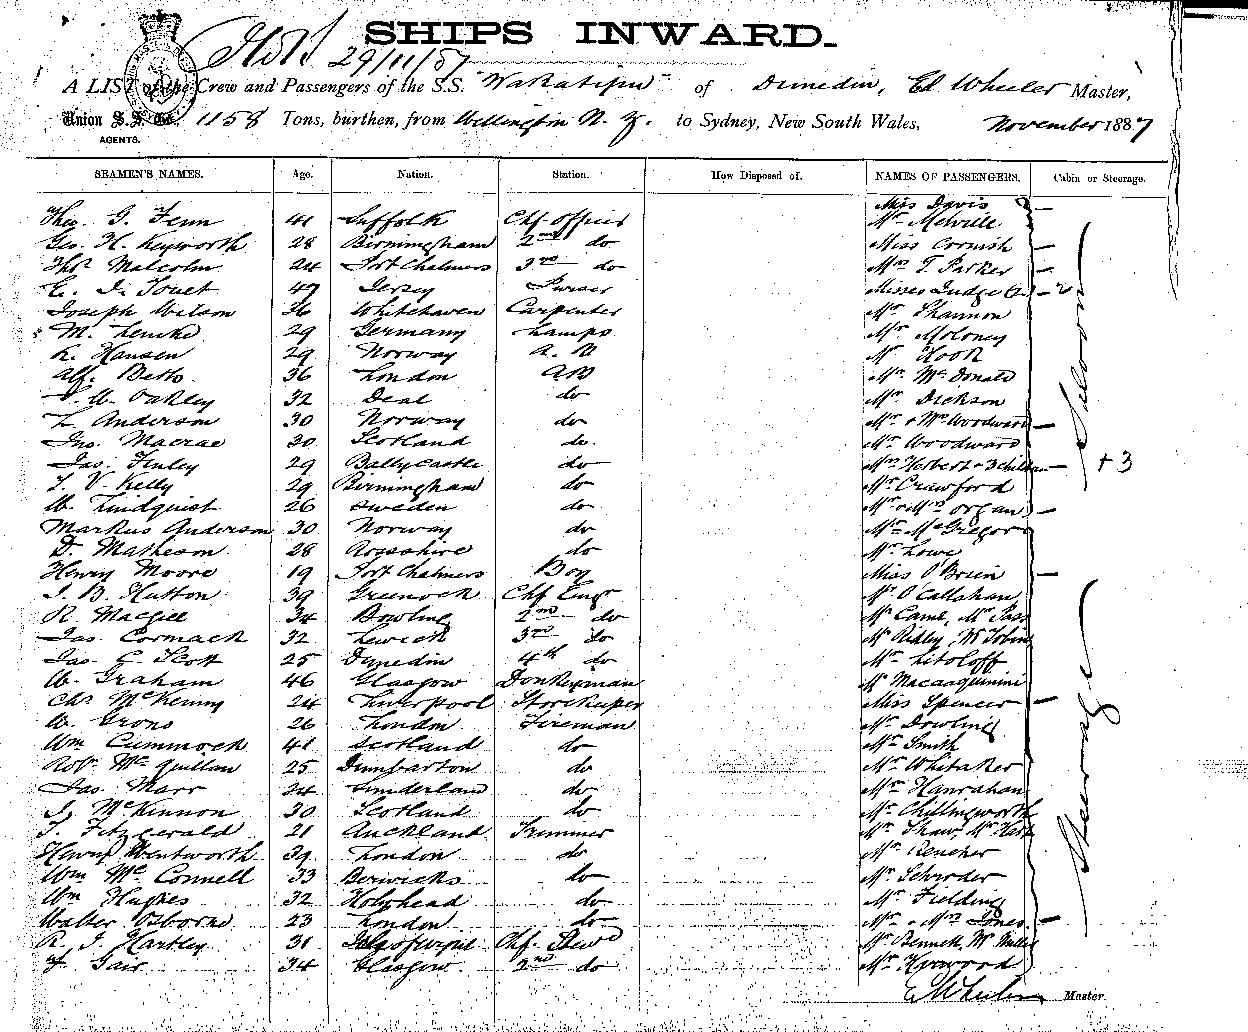 SHIPS INWARD.
29/11/87
A LIST of the Crew and Passengers of the S.S. "Wakatipu" of Dunedin, Ed Wheeler Master,
Union S.S. Co. 1158 Tons, burthen, from Wellington N. Z. to Sydney, New South Wales, November 1887
AGENTS.
SEAMEN'S NAMES. Age. Nation. Station. How Disposed of. NAMES OF PASSENGERS. Cabin or Steerage.
Miss Davis
Theo. G. Fenn 41 Suffolk Chf Officer Mr Melville
Geo. H. Keyworth 28 Birmingham 2nd do Miss Cornish
Thos Malcolm 24 Port Chalmers 3rd do Mrs T. Parker
E. I. Touet 47 Jersey Purser Misses Judge 2
Joseph Wilson 36 Whitehaven Carpenter Mr Shannon
M. Lemke 29 Germany Lamps Mr Moloney
K. Hansen 29 Norway A.B Mr Hook
Alf. Betts 36 London AB Mr McDonald
Oakley 32 Deal do Mr Dickson
L Anderson 30 Norway do Mr & Mrs Woodward
Jno. Macrae 30 Scotland do. Mr Woodward
Saloon
Jas. Finley 29 Ballycastle do Mrs Herbert + 3 children + 3
T. V. Kelly 29 Birmingham do Mr Crawford
W. Lindquist 26 Sweden do Mr & Mrs Organ
Markus Anderson 30 Norway do Mr McGregor
D. Matheson 28 Rossshire do Mr Lowe
Henry Moore 19 Port Chalmers Boy Miss O'Brien
J. B. Hutton 39 Greenock Chf Engr Mr O'Callahan
R. Macgill 34 Bowling 2nd do Mr Came, Mr Pass
Jas. Cormack 32 Lewick 3rd do Mr Ridley, Mr Tobin
Jas. G. Scott 25 Dunedin 4th do Mr Litoloff
W. Graham 46 Glasgow Donkeyman Mr Macaaquinini
Chs McKenny 24 Liverpool Storekeeper Miss Spencer
W. Grons 26 London Fireman Mr Dowling
Wm Cummock 41 Scotland do Mr Smith
Steerage
Robt McQuillan 25 Dumbarton do Mr Whitaker
Jas. Marr 24 Sunderland do Mr Hanrahan
J. McKinnon 30 Scotland do Mr Chillingworth
T. Fitzgerald 21 Auckland Trimmer Mr Shaw, Mr Hart
Henry Wentworth 39 London do Mr Rencher
Wm McConnell 33 Berwicks do Mr Schroder
Wm Hughes 32 Holyhead do Mr Fielding
Walter Osborne 23 London do Mr & Mrs Jones
R. J. Hartley 31 Chf. Stewd Mr Bennett, Mr
Gair 34 Glasgow 2nd do Mr Horwood
E Wheeler Master.